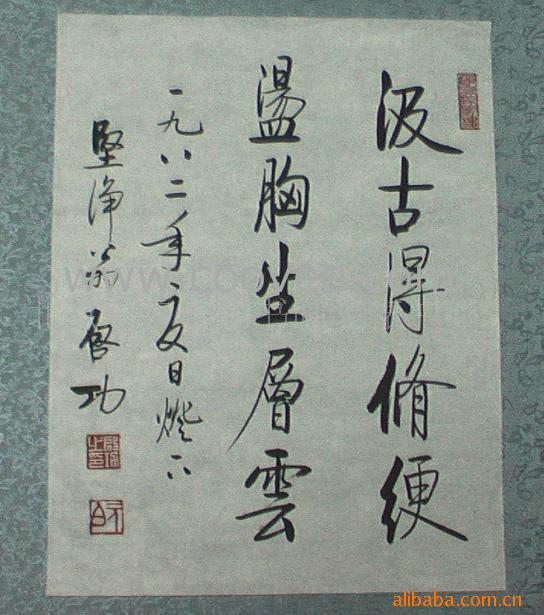 汲古得脩綆
盪胸生層雲
一九八二年夏日燈下
堅净翁启功
alibaba.com.cn